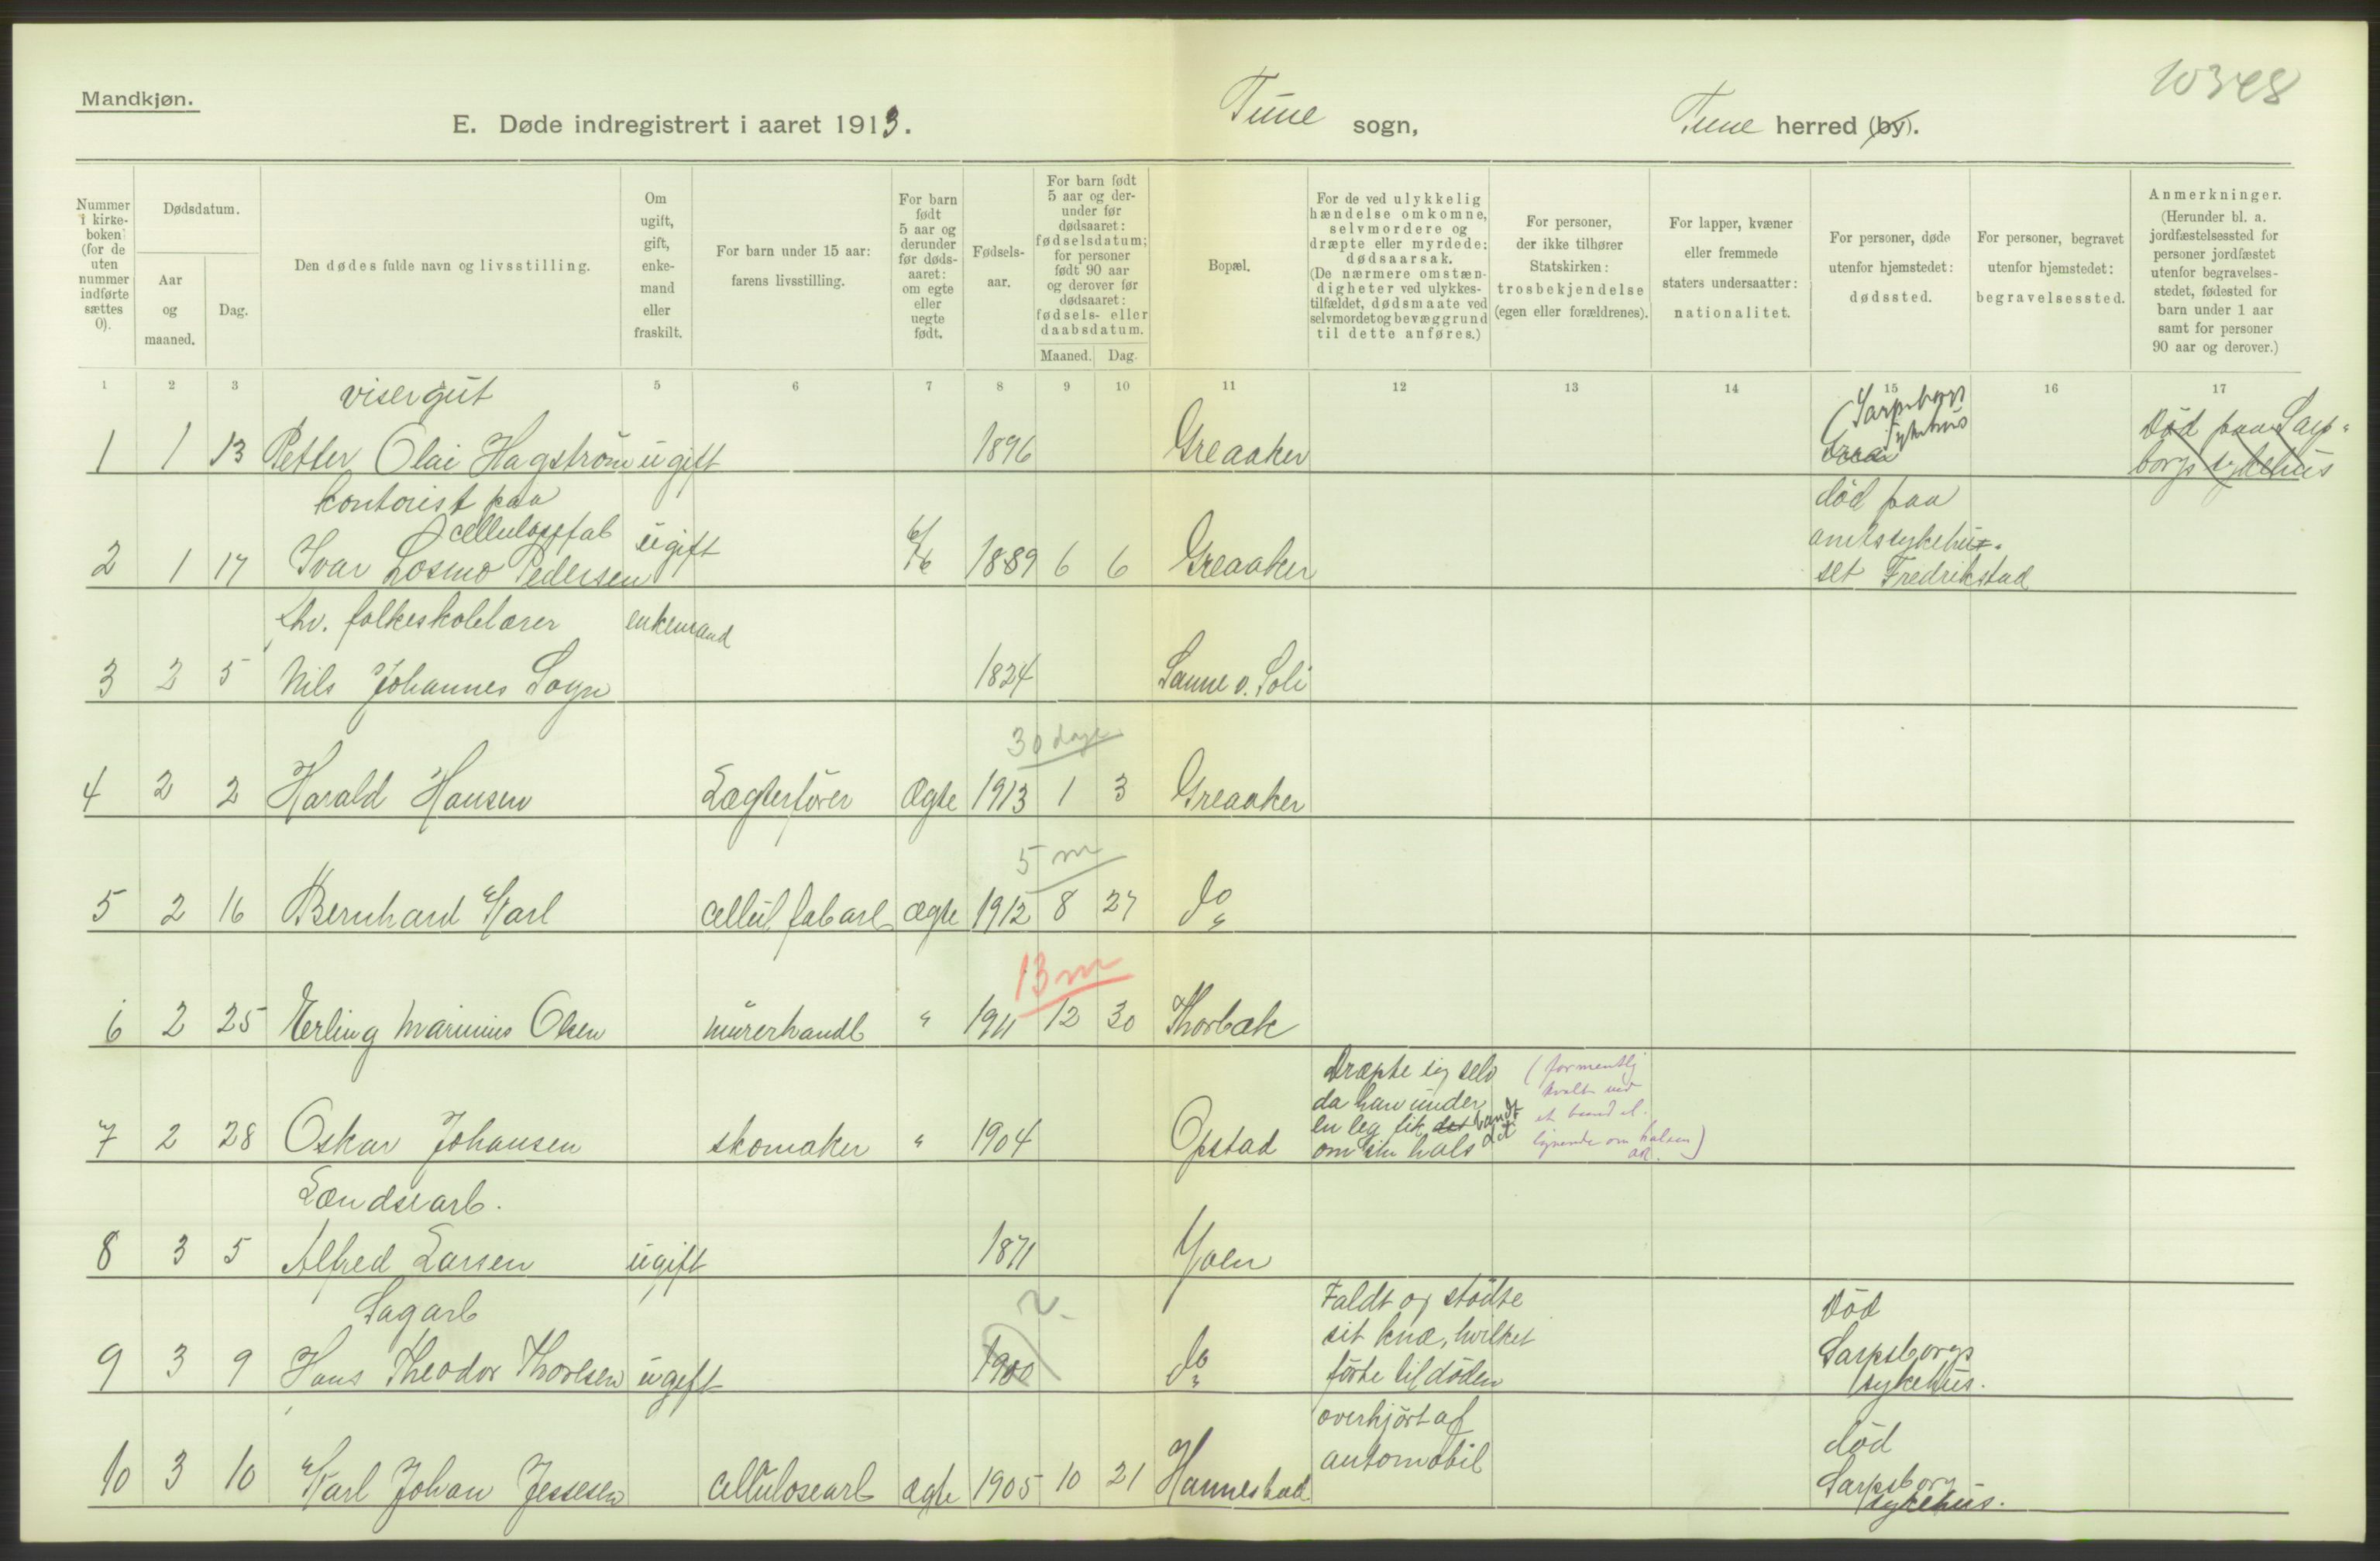 Mandkjøn.
10348
E. Døde indregistrert i aaret 1913.
Tune sogn,
Tune herred (by).
Nummer i kirke-boken (for de uten nummer indførte sættes 0).
Dødsdatum.
Aar og maaned.
Dag.
Den dødes fulde navn og livsstilling.
Om ugift, gift, enke-mand eller fraskilt.
For barn under 15 aar: farens livsstilling.
For barn født 5 aar og derunder før døds-aaret: om egte eller uegte født.
Fødsels-aar.
For barn født 5 aar og der-under før dødsaaret: fødselsdatum; for personer født 90 aar og derover før dødsaaret: fødsels- eller daabsdatum.
Maaned.
Dag.
Bopæl.
For de ved ulykkelig hændelse omkomne, selvmordere og dræpte eller myrdede: dødsaarsak. (De nærmere omstæn-digheter ved ulykkes-tilfældet, dødsmaate ved selvmordet og bevæggrund til dette anføres.)
For personer, der ikke tilhører Statskirken: trosbekjendelse (egen eller forældrenes).
For lapper, kvæner eller fremmede staters undersaatter: nationalitet.
For personer, døde utenfor hjemstedet: dødssted.
For personer, begravet utenfor hjemstedet: begravelsessted.
Anmerkninger. (Herunder bl. a. jordfæstelsessted for personer jordfæstet utenfor begravelses-stedet, fødested for barn under 1 aar samt for personer 90 aar og derover.)
1 2 3 5 6 7 8 9 10 11 12 13 14 15 16 17
visergut
1 1 13 Petter Olai Hagström ugift 1896 Greaaker
Sarpsborgs
sykehus
Død paa Sarp-
borgs sykehus
kontorist paa
cellulosefab
2 1 17 Ivar Losmo Pedersen ugift 6/6 1889 6 6 Greaaker
død paa
amtssykehu-
set Fredrikstad
fhv. folkeskolelærer enkemand
3 2 5 Nils Johannes Sogn 1824 Sanne v. Soli
30 dage
4 2 2 Harald Hansen Lægterfører Ægte 1913 1 3 Greaaker
5 m
5 2 16 Bernhard Karl cellul fabarb ægte 1912 8 27 do
13 m
6 2 25 Erling Marinius Olsen murerhandl " 1911 12 30 Thorbæk
7 2 28 Oskar Johansen skomaker " 1904 Opstad
Dræpte sig selv
da han under
en leg fik det bandt det
om sin hals
(formentlig
kvalt ved
et baand el.
lignende om halsen)
Lændsearb.
8 3 5 Alfred Larsen ugift 1871 Yven
Sagarb
9 3 9 Hans Theodor Thoresen ugift 1900 do
2
Faldt og stødte
sit knæ, hvilket
førte til døden
Død
Sarpsborgs
sykehus.
10 3 10 Karl Johan Jessesen Cellulosearb ægte 1905 10 21 Hannestad
overkjørt af
automobil
død
Sarpsborg
sykehus.